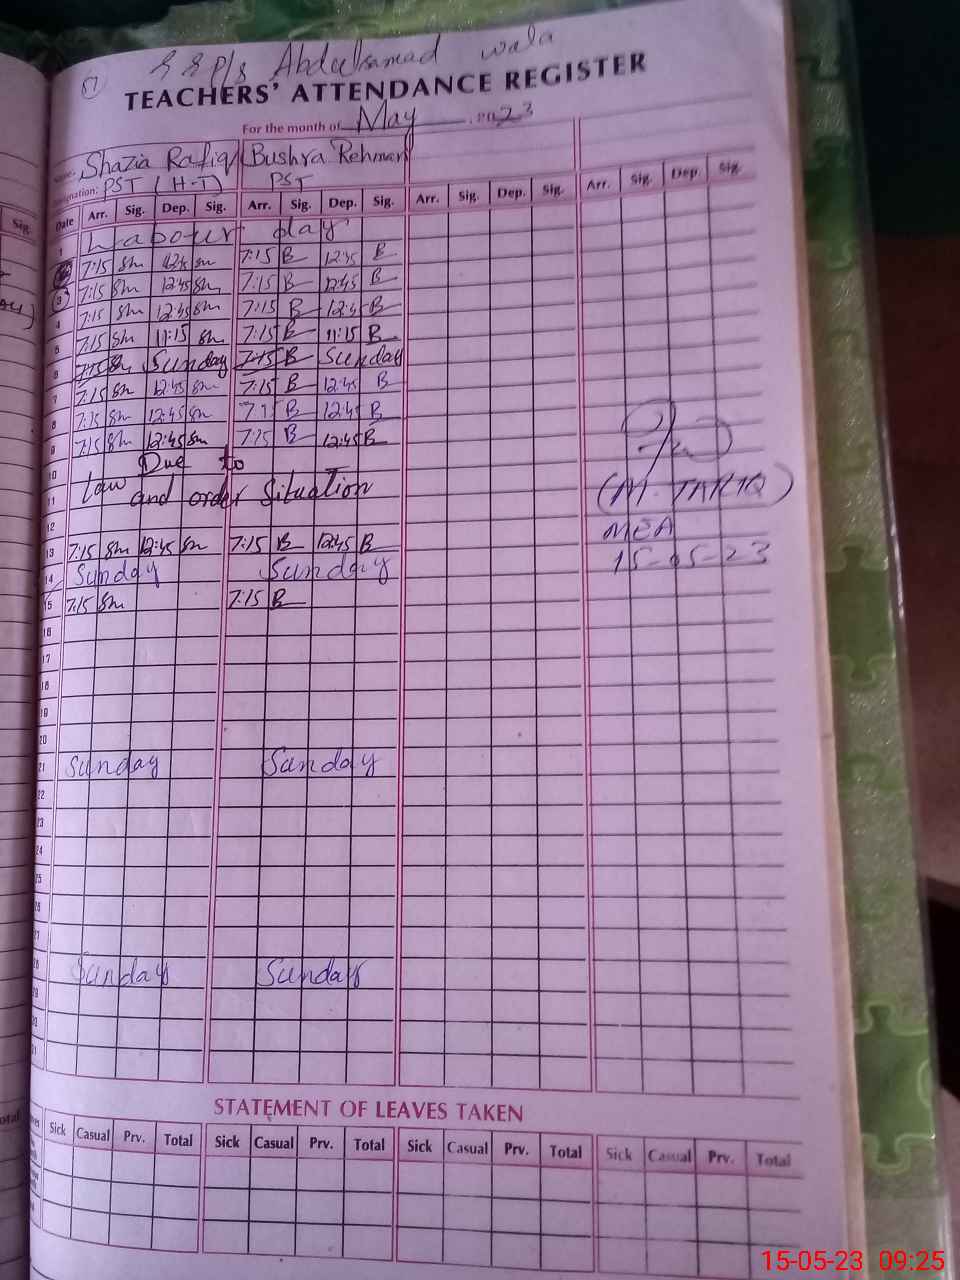 51 GGP/S Abdulsamad wala
TEACHERS' ATTENDANCE REGISTER
For the month of May 2023
Name: Shazia Rafiq Bushra Rehman
Designation: PST (H-T) PST
Date Arr. Sig. Dep. Sig. Arr. Sig. Dep. Sig. Arr. Sig. Dep. Sig. Arr. Sig. Dep. Sig.
1 Labour day
7:15 Sm 12:45 Sm 7:15 B 12:45 B
3 7:15 Sm 12:45 Sm 7:15 B 12:45 B
4 7:15 Sm 12:45 Sm 7:15 B 12:45 B
5 7:15 Sm 11:15 Sm 7:15 B 11:15 B
6 7:15 Sm Sunday 7:15 B Sunday
7 7:15 Sm 12:45 Sm 7:15 B 12:45 B
8 7:15 Sm 12:45 Sm 7:15 B 12:45 B
9 7:15 Sm 12:45 Sm 7:15 B 12:45 B
10 Due to
11 law and order Situation (M. TARIQ)
12 MEA
13 7:15 Sm 12:45 Sm 7:15 B 12:45 B 15-05-23
14 Sunday Sunday
15 7:15 Sm 7:15 B
16
17
18
19
20
21 Sunday Sunday
22
23
24
25
26
27
28 Sunday Sunday
29
30
31
STATEMENT OF LEAVES TAKEN
Sick Casual Prv. Total Sick Casual Prv. Total Sick Casual Prv. Total Sick Casual Prv. Total
15-05-23 09:25